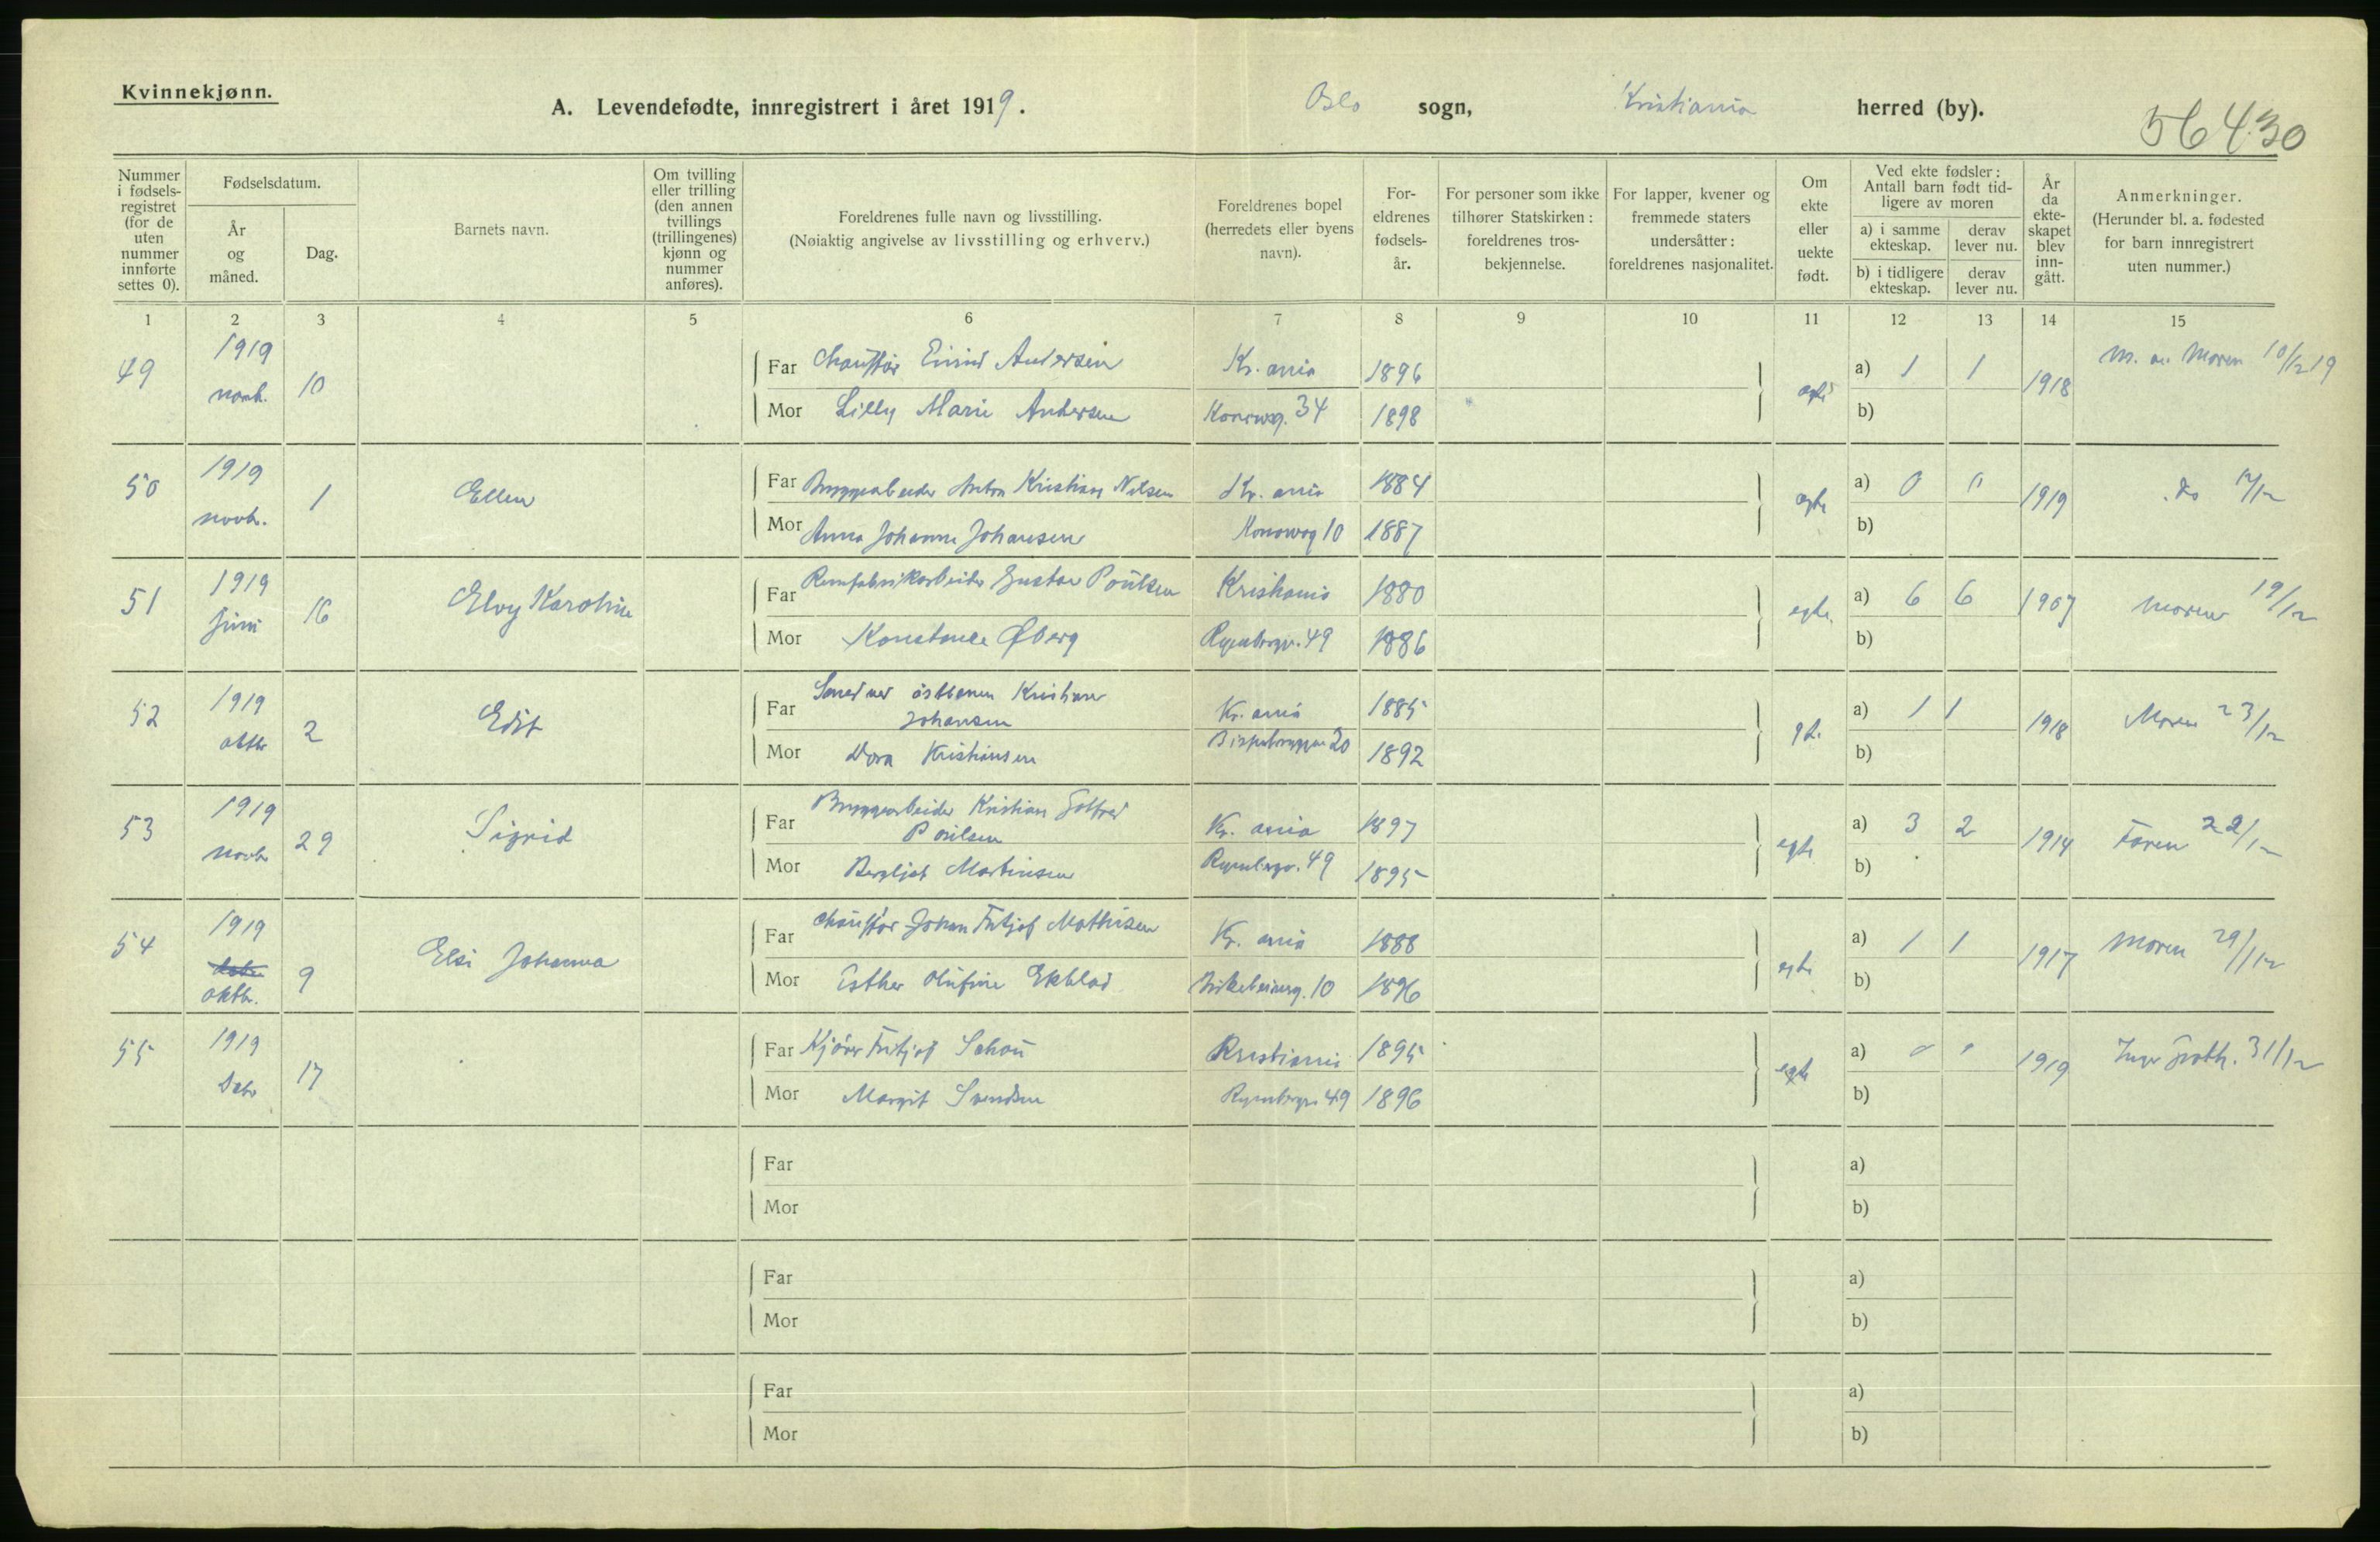 Kvinnekjønn.
A. Levendefødte, innregistrert i året 1919. Oslo sogn, Kristiania herred (by).
56430
Nummer i fødselsregistret (for de uten nummer innførte settes 0).
Fødselsdatum.
År og måned.
Dag.
Barnets navn.
Om tvilling eller trilling (den annen tvillings (trillingenes) kjønn og nummer anføres).
Foreldrenes fulle navn og livsstilling.
(Nøiaktig angivelse av livsstilling og erhverv.)
Foreldrenes bopel (herredets eller byens navn).
Foreldrenes fødselsår.
For personer som ikke tilhører Statskirken: foreldrenes trosbekjennelse.
For lapper, kvener og fremmede staters undersåtter: foreldrenes nasjonalitet.
Om ekte eller uekte født.
Ved ekte fødsler: Antall barn født tidligere av moren
a) i samme ekteskap.
derav lever nu.
b) i tidligere ekteskap.
derav lever nu.
År da ekteskapet blev inngått.
Anmerkninger.
(Herunder bl. a. fødested for barn innregistrert uten nummer.)
1 2 3 4 5 6 7 8 9 10 11 12 13 14 15
49 1919 novb. 10 Far Chauffør Eivind Andersen Kr.ania 1896 a) 1 1 1918 Moren 10/12 19
Mor Lilly Marie Andersen 34 1898 b)
50 1919 novbr. 1 Ellen Far Anton Kristian Nilsen Kr.ania 1884 egte a) 0 0 1919 do
Mor Anna Johanne Johansen 10 1887 b)
51 1919 Juni 16 Elvy Karoline Far Gustav Poulsen Kristiania 1880 egte. a) 6 6 1907 Moren 19/12
Mor Konstance Øberg 49 1886 b)
52 1919 oktbr 2 Edit Far Kristian
Johansen Kr.ania 1885 a) 1 1 1918 Moren 23/12
Mor Dora Kristiansen 20 1892 b)
53 1919 novbr 29 Sigrid Far Bryggearbeider Kristian Gotfred
Poulsen Kr.ania 1897 egte a) 3 2 1914 Faren 22/12
Mor Bergljot Martinsen 49 1895 b)
54 1919 oktbr. 9 Elsi Johanna Far Chauffør Johan Fritjof Mathisen Kr.ania 1888 egte a) 1 1 1917 Moren 29/12
Mor Esther Olufine Ekblad 10 1896 b)
55 1919 Decbr 17 Far Kjører Fritjof Schou Kristiania 1895 egte a) 0 0 1919 31/12
Mor Margit Svendsen 49 1896 b)
Far a)
Mor b)
Far a)
Mor b)
Far a)
Mor b)